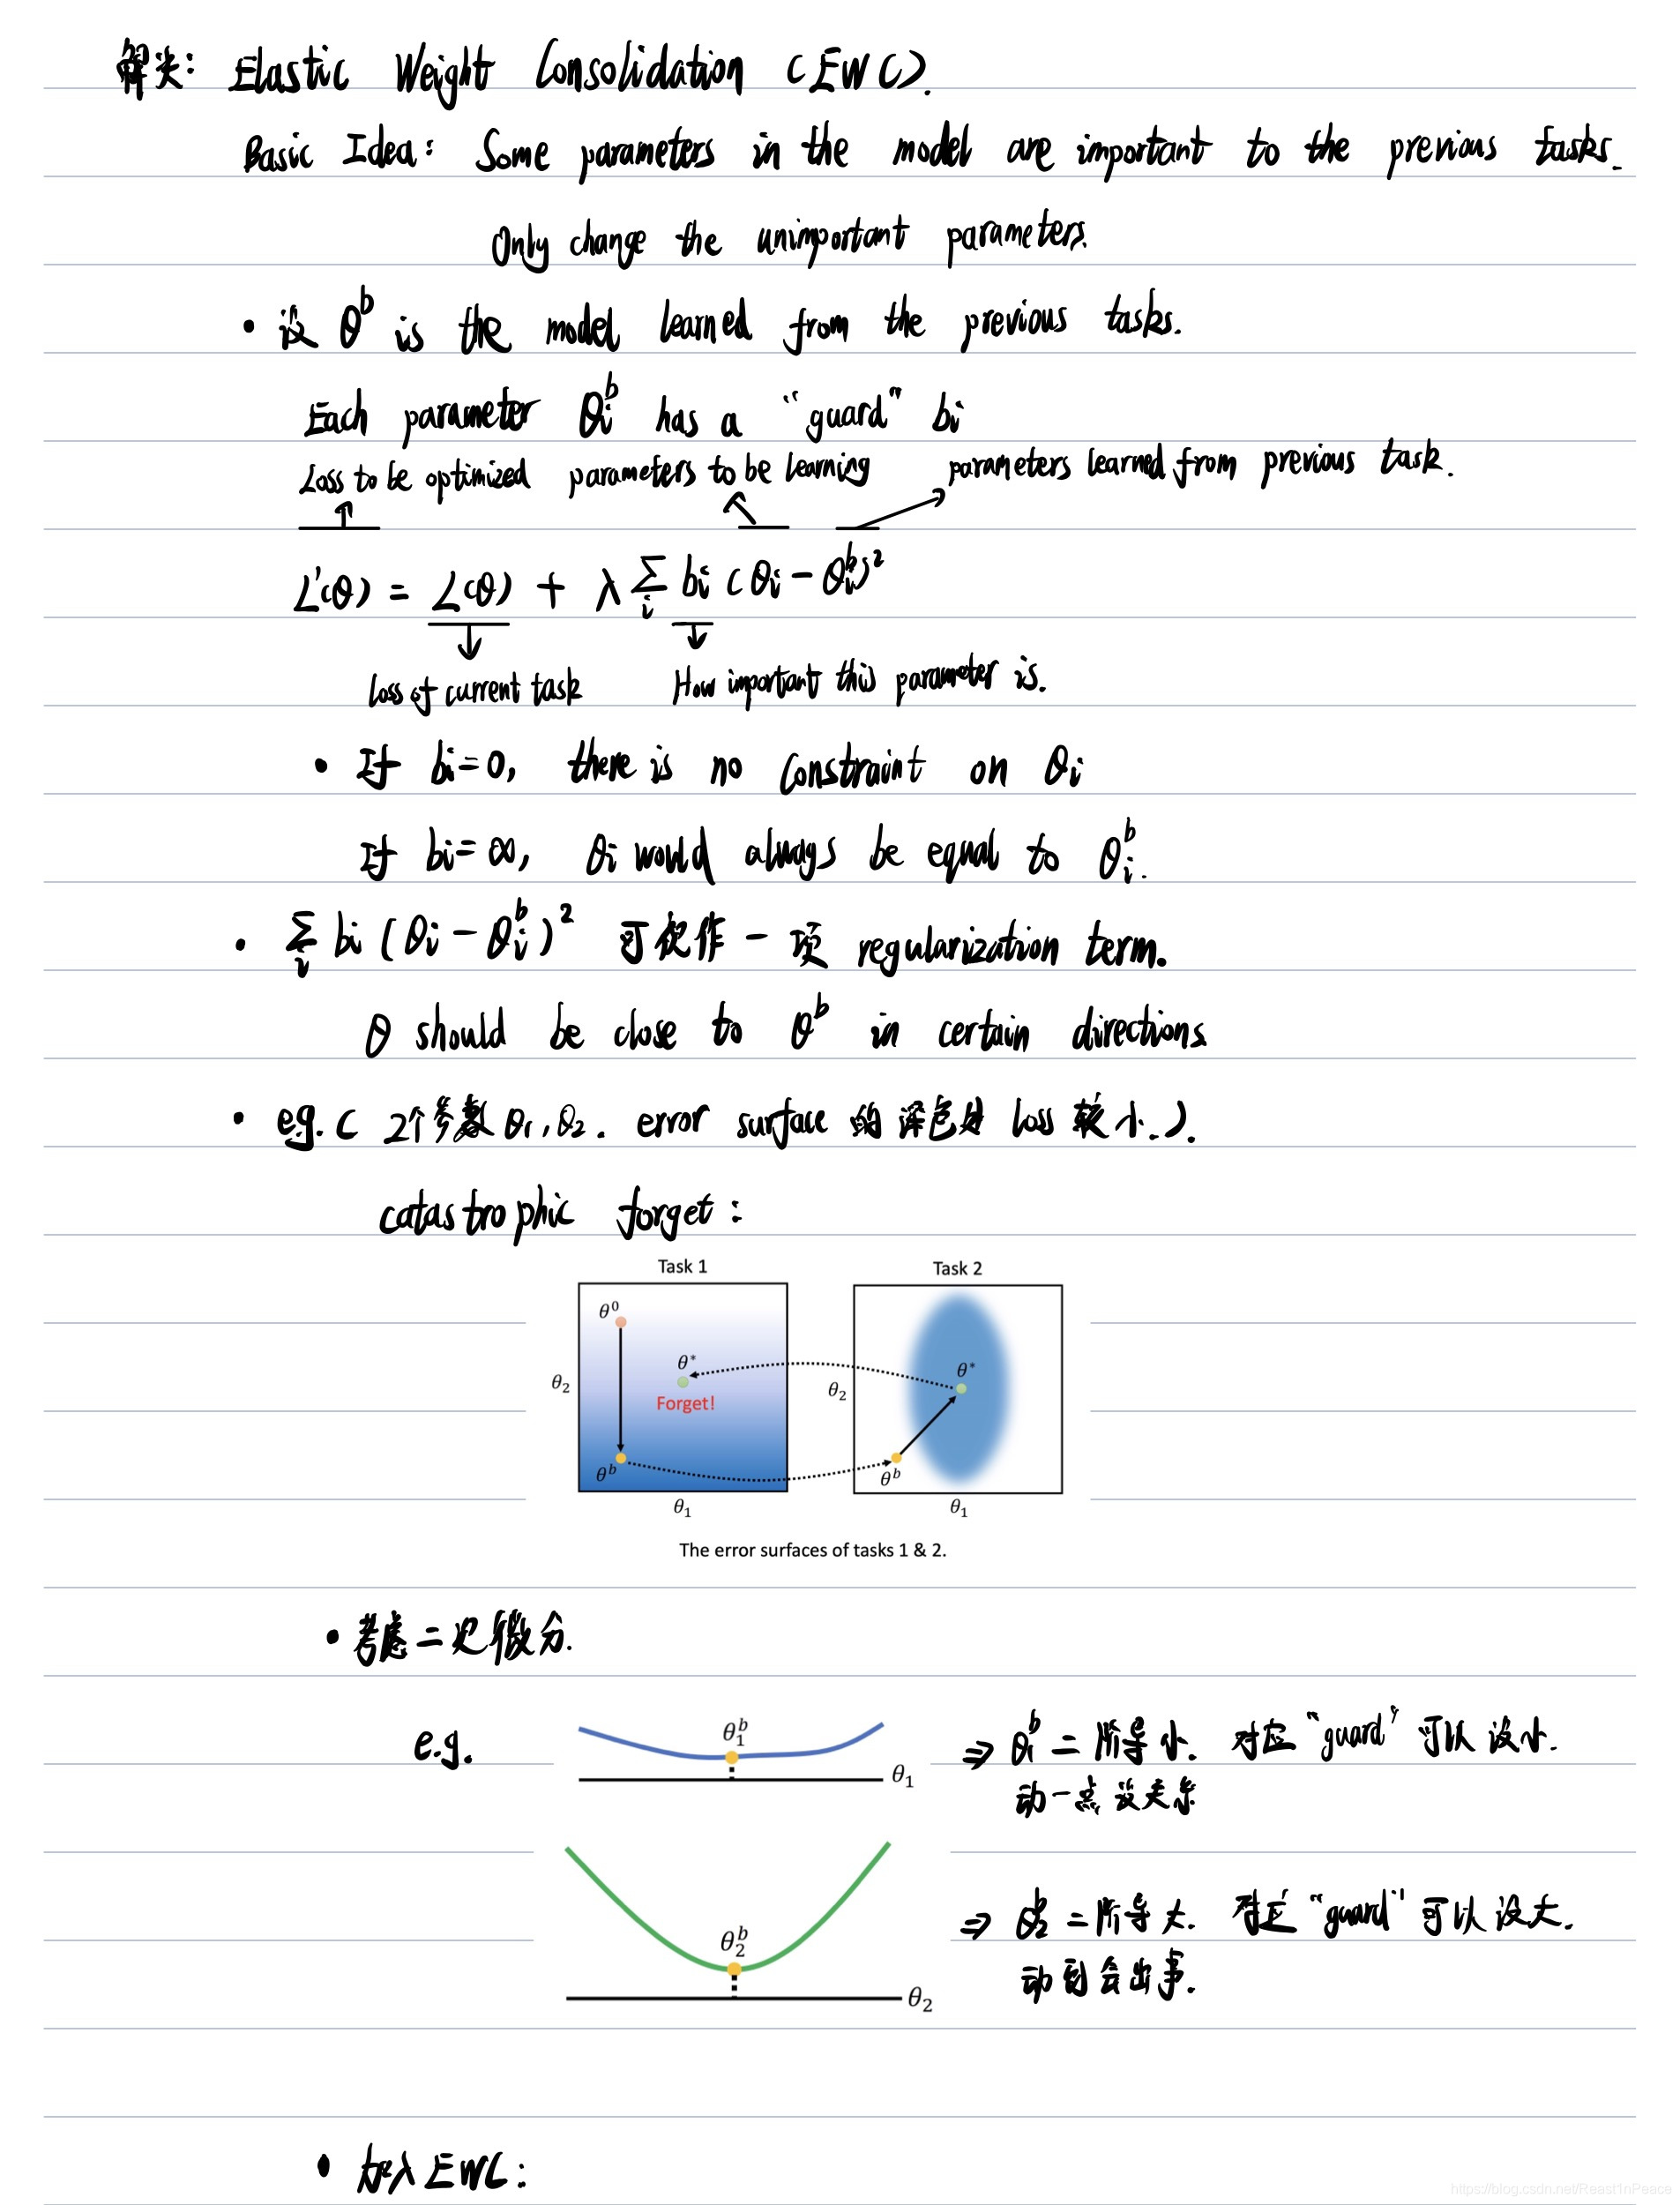 解决: Elastic Weight Consolidation (EWC).
Basic Idea: Some parameters in the model are important to the previous tasks.
Only change the unimportant parameters.
• 设 θ^b is the model learned from the previous tasks.
Each parameter θ_i^b has a "guard" b_i
Loss to be optimized parameters to be learning parameters learned from previous task.
L'(θ) = L(θ) + λ Σ_i b_i (θ_i - θ_i^b)^2
loss of current task How important this parameter is.
• If b_i=0, there is no constraint on θ_i
If b_i=∞, θ_i would always be equal to θ_i^b.
• Σ_i b_i (θ_i - θ_i^b)^2 可视作一项 regularization term.
θ should be close to θ^b in certain directions
• e.g. ( 2个参数 θ_1, θ_2. error surface 的深色处 loss 较小.).
catastrophic forget:
Task 1 Task 2
θ^0
θ^* θ^*
θ_2 Forget! θ_2
θ^b θ^b
θ_1 θ_1
The error surfaces of tasks 1 & 2.
• 考虑二次微分.
e.g. θ_1^b θ_1 ⇒ θ_1^b 二阶导小. 对应 "guard" 可以设小.
动一点没关系
θ_2^b θ_2 ⇒ θ_2^b 二阶导大. 对应 "guard" 可以设大.
动到会出事.
• 加入 EWC:
https://blog.csdn.net/Reast1nPeace